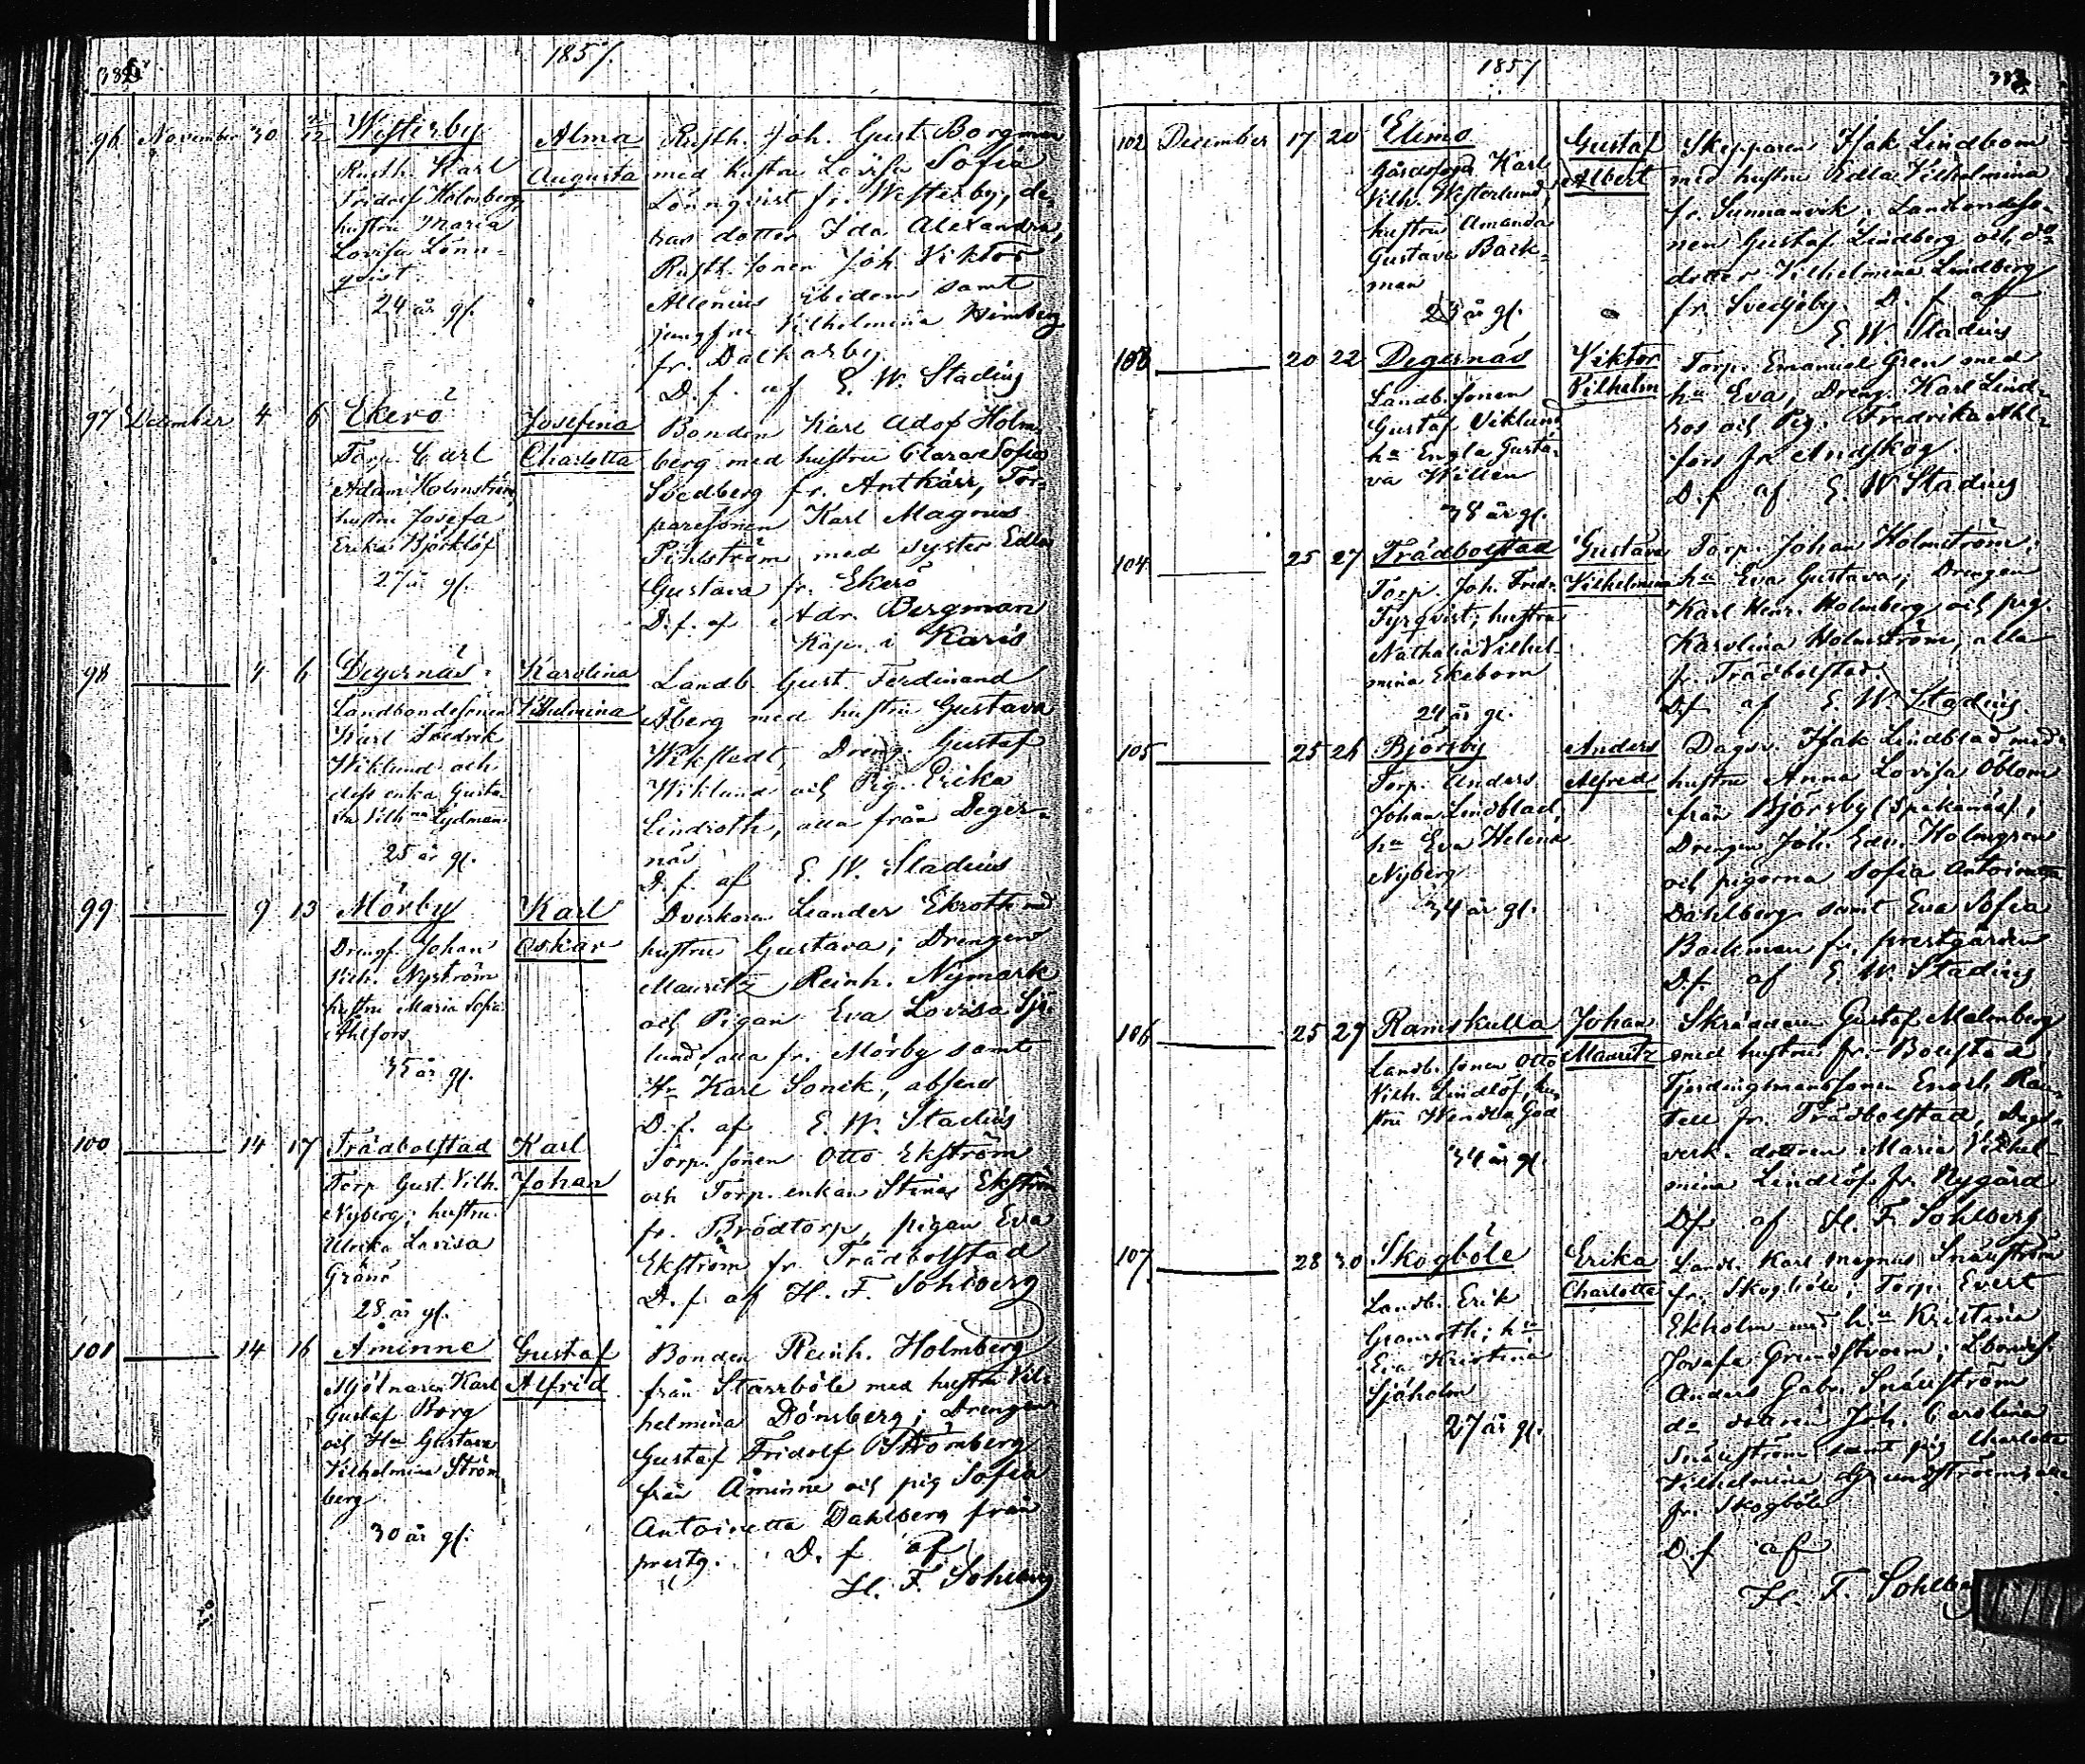 1857.
96 November 30 12 Westerby
Rusth. Karl
Fridolf Holmberg,
hustru Maria
Lovisa Lönn-
qvist
24 år gl.
Alma
Augusta
Rusth. Joh. Gust. Borgman
med hustru Lovisa Sofia
Lönnqvist fr. Westerby, de-
ras dotter Ida Alexandra,
Rusth. sonen Joh. Viktor
Allenius ibidem samt
jungfru Vilhelmina
fr. Dalkarby.
D. f. af E. W. Stadius
97 December 4 6 Ekerö
Torp. Carl
Adam Holmström,
hustru Josefa
Erika Björklöf
27 år gl.
Josefina
Charlotta
Bonden Karl Adof Holm-
berg med hustru Clara Sofia
Svedberg fr. Antkärr, Tor-
paresonen Karl Magnus
Pihlström med syster Edla
Gustava fr. Ekerö
D. f. af Adr. Bergman
Kap. i Karis
98 4 6 Degernäs
Landbondesonen
Karl Fredrik
Wiklund och
dess enka Gusta-
va Vilh:na Lydman
25 år gl.
Karolina
Vilhelmina
Landb. Gust. Ferdinand
Åberg med hustru Gustava
Wikstedt, Dreng. Gustaf
Wiklund och Pig. Erika
Lindroth, alla från Deger-
näs
D. f. af E. W. Stadius
99 9 13 Mörby
Drengf. Johan
Vilh. Nyström
hustru Maria Sofia
Ahlfors
35 år gl.
Karl
Oskar
Leander Ekroth med
hustru Gustava; Drengen
Mauritz Reinh. Nymark
och Pigan Eva Lovisa Sjö-
lund, alla fr. Mörby samt
Hr Karl Sonck, absens
D. f. af E. W. Stadius
100 14 17 Trädbolstad
Torp. Gust. Vilh.
Nyberg; hustru
Ulrika Lovisa
Grönr
28 år gl.
Karl
Johan
Torp. sonen Otto Ekström
och Torp. enkan Stina Ekström
fr. Brödtorp, pigan Eva
Ekström fr. Trädbolstad
D. f. af H. F. Sohlberg
101 14 16 Åminne
Mjölnaren Karl
Gustaf Borg
och Hu Gustava
Vilhelmina Ström
berg
30 år gl.
Gustaf
Alfrid
Bonden Reinh. Holmberg
från Starrböle med hustru Vil-
helmina Dönsberg; Drengen
Gustaf Fridolf Strömberg
från Åminne och pig Sofia
Antoinetta Dahlberg från
prestg. D. f. af
H. F. Sohlberg
1857
102 December 17 20 Elimo
Gårdsfogd Karl
Vilh. Westerlund,
hustru Amanda
Gustava Back-
man
23 år gl.
Gustaf
Albert
Skepparen Isak Lindbom
med hustru Edla Vilhelmina
fr. Sunnanvik; Landbondeso-
nen Gustaf Lindberg och do
dotter Vilhelmina Lindberg
fr. Svedjeby. D. f. af
E. W. Stadius
103 20 22 Degernäs
Landb. sonen
Gustaf Viklund
hu Engla Gusta-
va Willen
38 år gl.
Viktor
Vilhelm
Torp. Emanuel Gren med
hu Eva, Dreng. Karl Lind-
ros och Pig. Fredrika Ahl-
fors fr Andskog.
D. f. af E. W. Stadius
104 25 27 Trädbolstad
Torp. Joh. Fredr.
Fyrqvist; hustru
Nathalia Vilhel-
mina Ekebom
24 år gl.
Gustava
Vilhelmina
Torp. Johan Holmström,
hu Eva Gustava; Drengen
Karl Henr. Holmberg och pig.
Karolina Holmström, alla
fr. Trädbolstad.
D.f. af E. W. Stadius
105 25 26 Björsby
Torp. Anders
Johan Lindblad,
hu Eva Helena
Nyberg
34 år gl.
Anders
Alfred
Dagsv. Isak Lindblad med
hustru Anna Lovisa Öblom
från Björsby (Spakanäs);
Drengen Joh. Edv. Holmgren
och pigorna Sofia Antoinetta
Dahlberg samt Eva Sofia
Backman fr. prestgården
D.f. af E. W. Stadius
106 25 29 Ramskulla
Landb. sonen Otto
Vilh. Lindlöf, hu-
stru Wendla God
34 år gl.
Johan
Mauritz
Skräddaren Gustaf Malmberg
med hustru fr. Bolstad;
Fjerdingsmanssonen Enoch Ran-
tell fr. Trädbolstad, Dags-
verk. dottren Maria Vilhel-
mina Lindlöf fr. Nygård
D.f. af H. F. Sohlberg
107 28 30 Skogböle
Landb. Erik
Granroth; hu
Eva Kristina
Sjöholm
27 år gl.
Erika
Charlotta
Landb. Karl Magnus Snäuström
fr. Skogböle, Torp. Evert
Ekholm med hu Kristina
Josefa Grundstroem; Lbondes.
Anders Gabr. Snäuström
do dottren Joh. Carolina
Snäuström samt pig Charlotta
Vilhelmina Grundstroem, alla
fr. Skogböle
D. f. af
H. F. Sohlberg